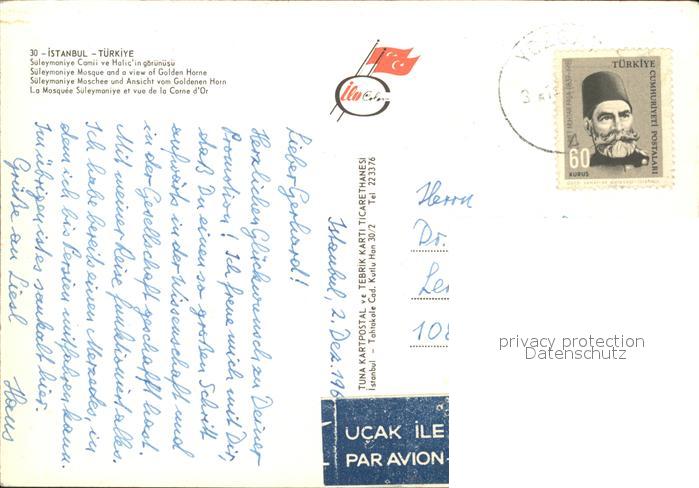 30 - İSTANBUL - TÜRKİYE
Süleymaniye Camii ve Haliç'in görünüşü
Süleymaniye Mosque and a view of Golden Horne
Süleymaniye Moschee und Ansicht vom Goldenen Horn
La Mosquée Süleymaniye et vue de la Corne d'Or
Color
TÜRKİYE
CUMHURİYETİ POSTALARI
60
KURUŞ
TUNA KARTPOSTAL ve TEBRİK KARTI TİCARETHANESİ
İstanbul - Tahtakale Cad. Kutlu Han 30/2 Tel 223376
Istanbul, 2. Dez. 196
Lieber Gerhard!
Herzlichen Glückwunsch zu Deiner
Promotion! Ich freue mich mit Dir,
daß Du einen so großen Schritt
aufwärts in der Wissenschaft und
in der Gesellschaft geschafft hast.
Mit meiner Reise funktioniert alles.
Ich habe bereits einen Mercedes, in
dem ich bis Persien mitfahren kann.
Im übrigen ist es saukalt hier.
Grüße an Liesl
Hans
Herrn
Dr.
108
UÇAK İLE
PAR AVION
privacy protection
Datenschutz